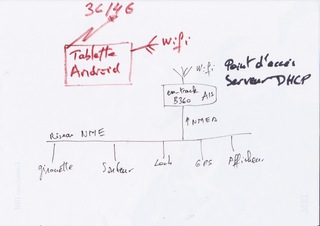 3G/4G
Wifi
Tablette
Android
Wifi
Point d'accès
Serveur DHCP
em-track
B360 AIS
↑NMEA
Réseau NME
girouette
Sondeur
Loch
GPS
Afficheur